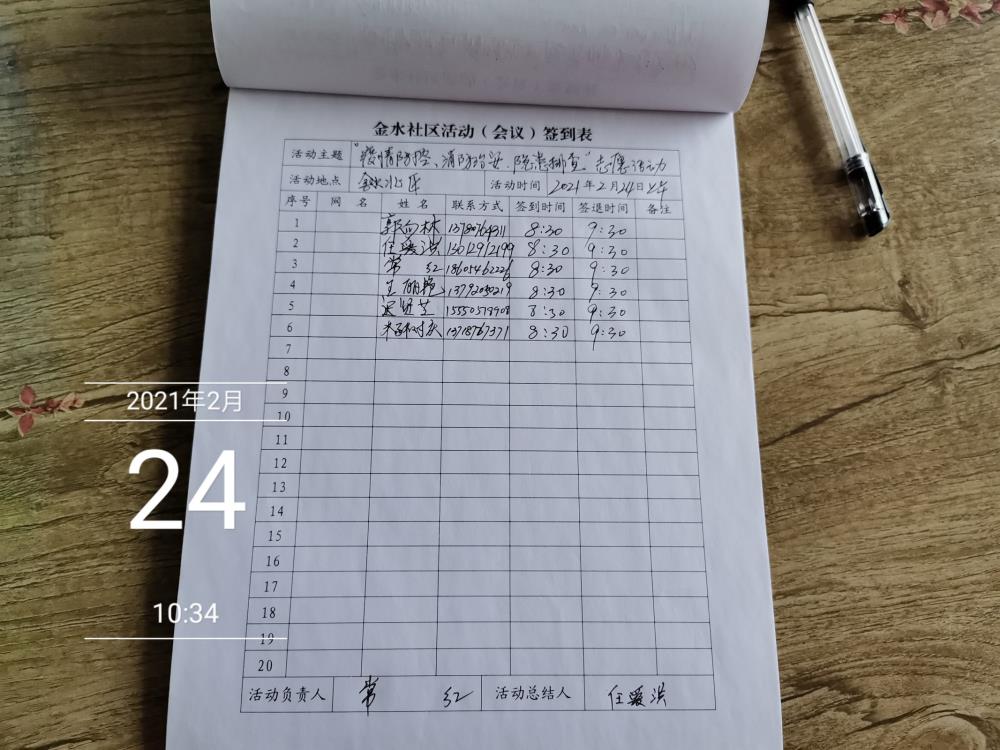 金水社区活动（会议）签到表
活动主题 "疫情防控、消防治安、隐患排查"志愿活动
活动地点 金水北区 活动时间 2021年2月24日上午
序号 网 名 姓 名 联系方式 签到时间 签退时间 备注
1 郭向林 8:30 9:30
2 任爱洪 13012912199 8:30 9:30
3 常 红 18605462226 8:30 9:30
4 王丽艳 13792050219 8:30 9:30
5 8:30 9:30
6 8:30 9:30
7
8
9
10
11
12
13
14
15
16
17
18
19
20
活动负责人 常 红 活动总结人 任爱洪
2021年2月
24
10:34